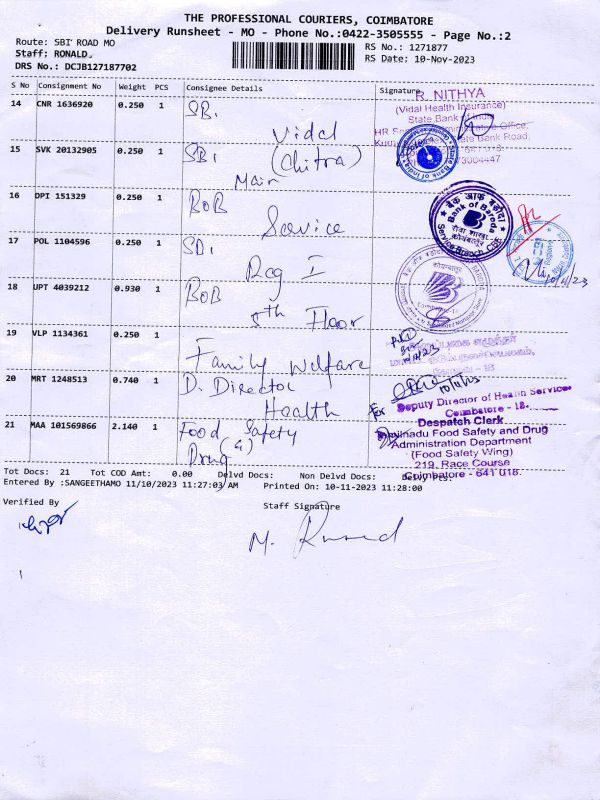 THE PROFESSIONAL COURIERS, COIMBATORE
Delivery Runsheet - MO - Phone No.:0422-3505555 - Page No.:2
Route: SBI ROAD MO
Staff: RONALD.
DRS No.: DCJB127187702
RS No.: 1271877
RS Date: 10-Nov-2023
S No Consignment No Weight PCS Consignee Details Signature
14 CNR 1636920 0.250 1 SBI
Vidal
R. NITHYA
(Vidal Health Insurance)
State Bank of India
15 SVK 20132905 0.250 1 SBI (Chitra)
Main
16 DPI 151329 0.250 1 BOB
Service
बैंक ऑफ़ बड़ौदा
Bank of Baroda
सेवा शाखा
कोयंबत्तूर
Service Branch, Cbe.
17 POL 1104596 0.250 1 SBI
Reg I
10/11/23
18 UPT 4039212 0.930 1 BOB
8th Floor
19 VLP 1134361 0.250 1 Family Welfare
20 MRT 1248513 0.740 1 D. Director
Health
10/11/23
For Deputy Director of Health Services
Coimbatore - 18.
21 MAA 101569866 2.140 1 Food Safety
(4)
Drug
Despatch Clerk
Tamilnadu Food Safety and Drug
Administration Department
(Food Safety Wing)
219, Race Course
Coimbatore - 641 018.
Tot Docs: 21 Tot COD Amt: 0.00 Delvd Docs: Non Delvd Docs: Delvy Pcs:
Entered By :SANGEETHAMO 11/10/2023 11:27:03 AM Printed On: 10-11-2023 11:28:00
Verified By
Staff Signature